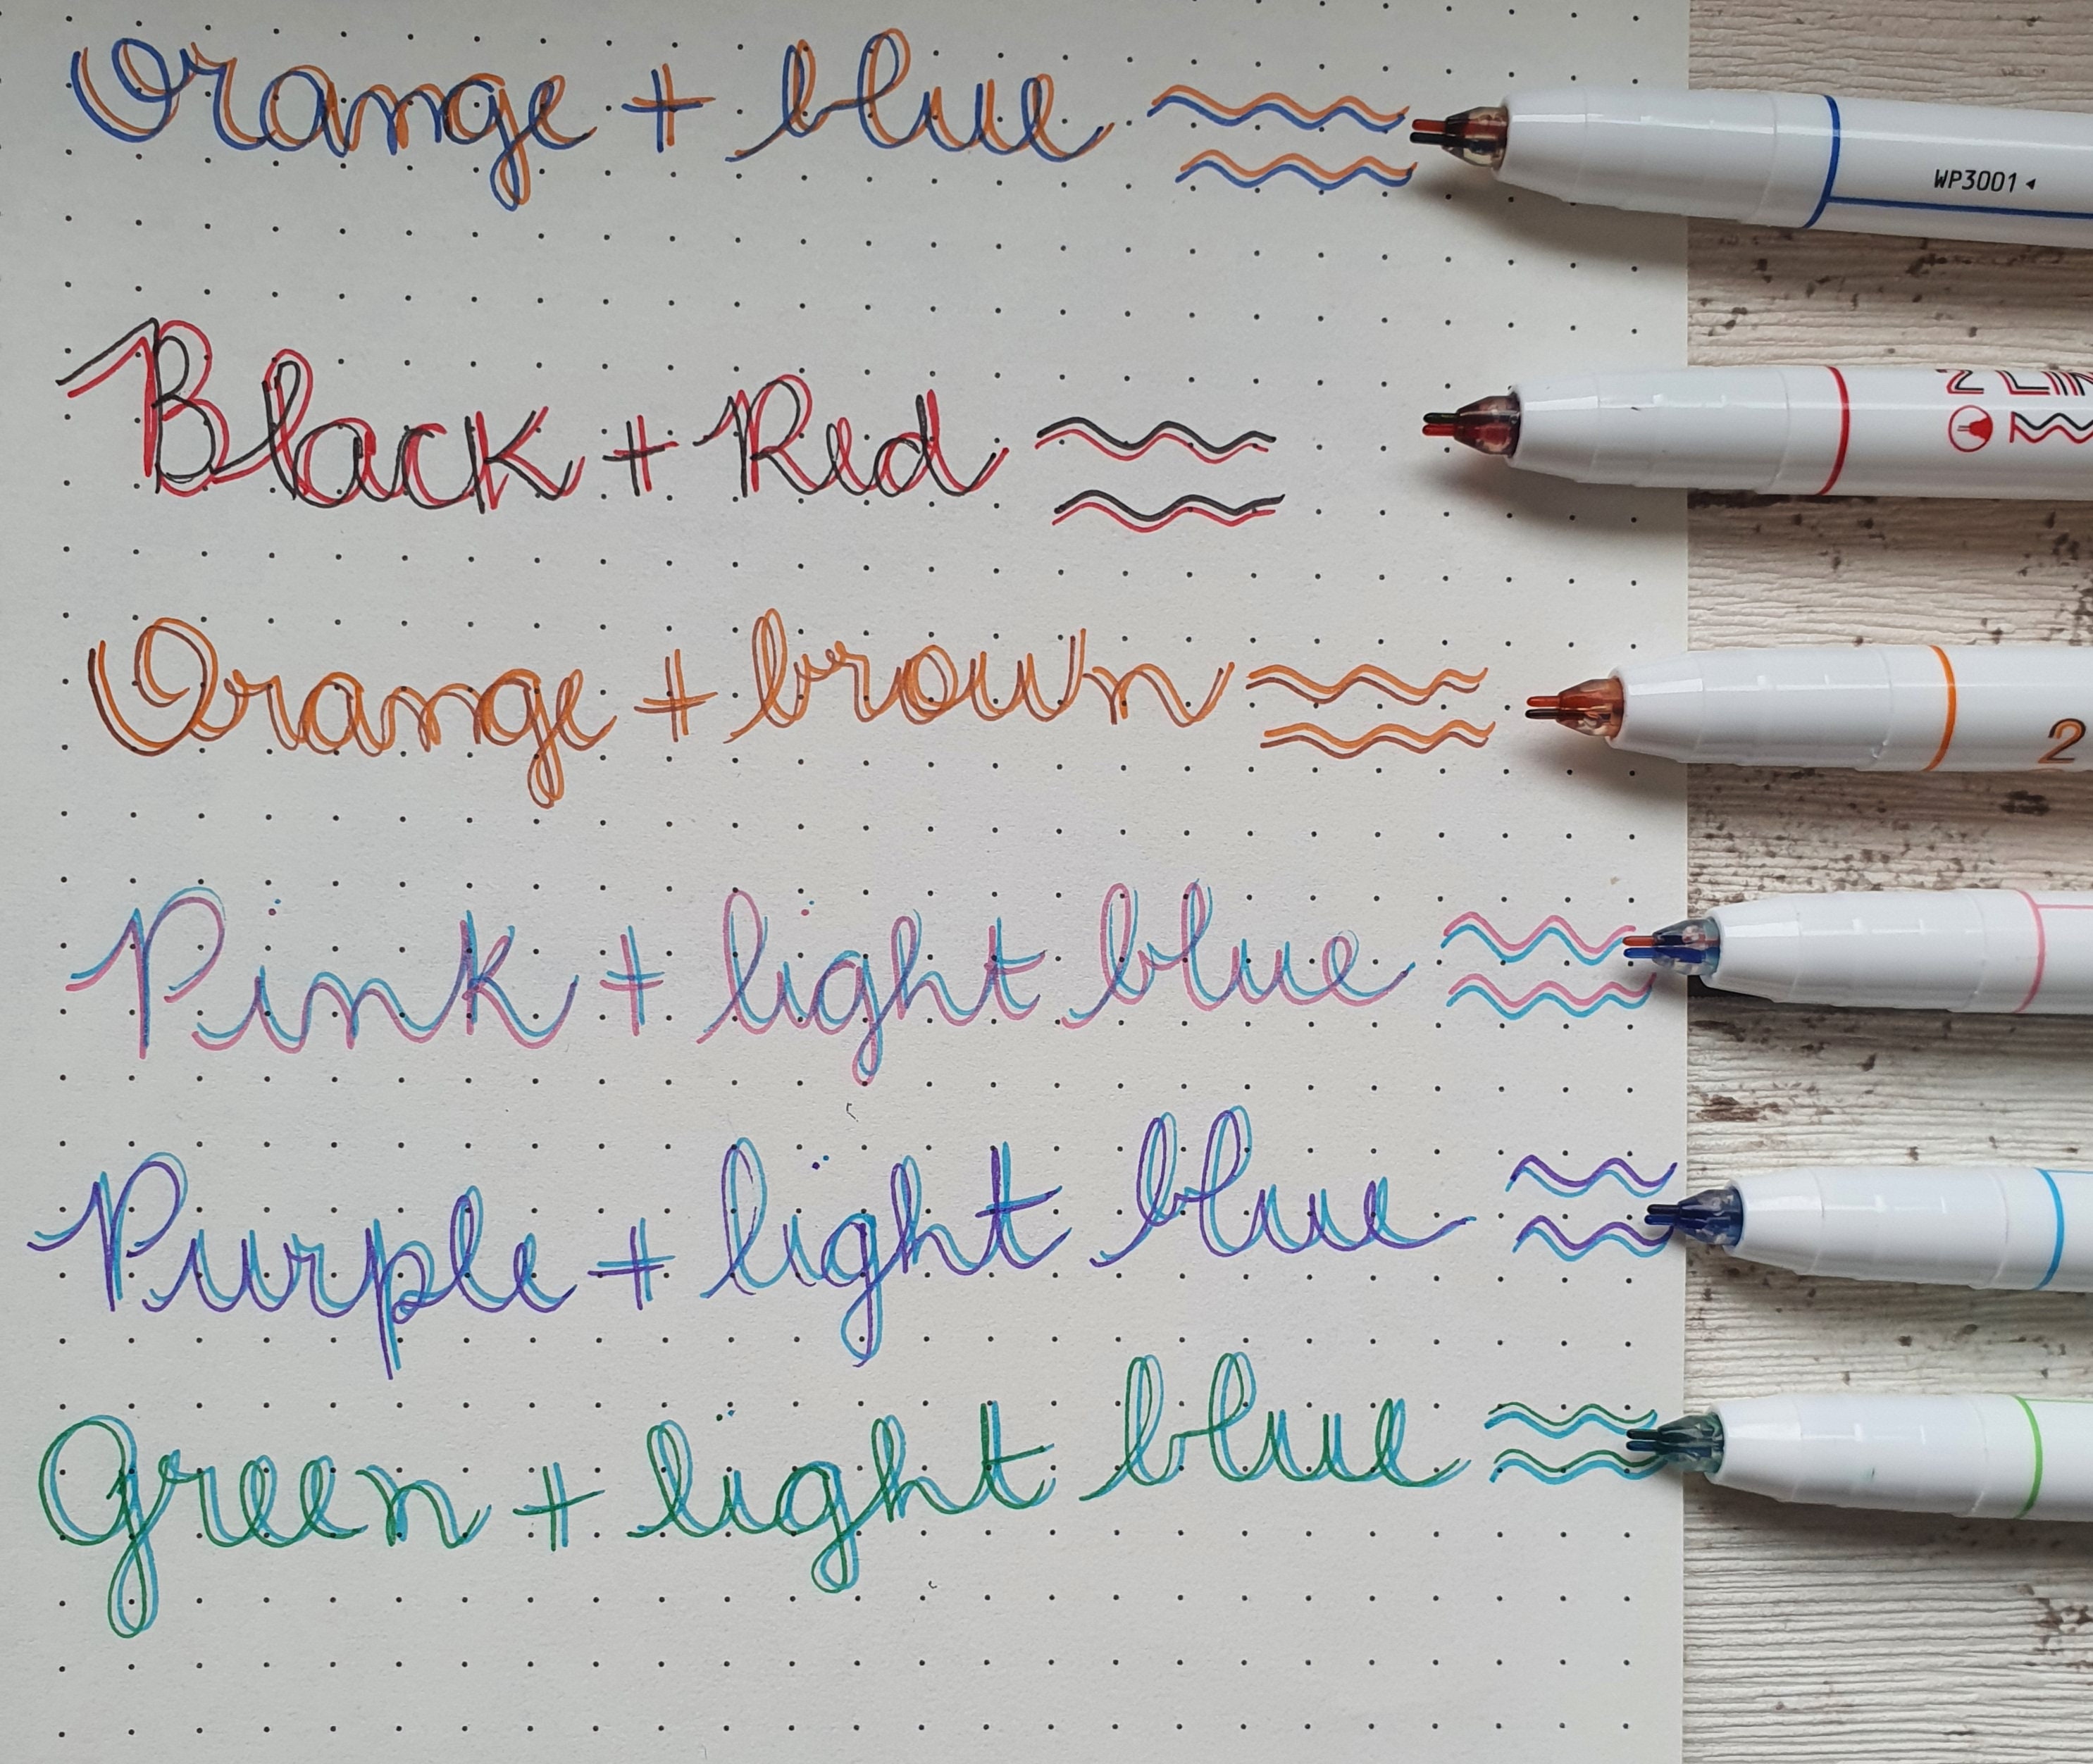 Orange + blue
WP3001
Black + Red
2 LIN
Orange + brown
2
Pink + light blue
Purple + light blue
Green + light blue